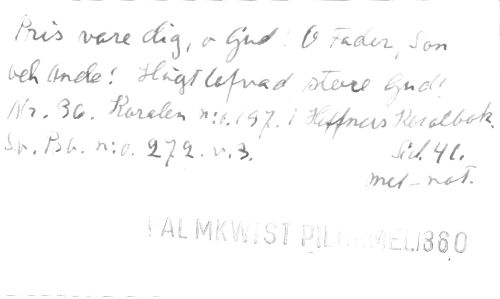 Pris vare dig, o Gud! O Fader, Son
och Ande! Högt lofvad store Gud!
Nr. 36. Koralen n:o. 197. i Hæffners Koralbok.
Sv. Ps. n:o. 272. v. 3. Sid. 41.
mel-not.
PALMKWIST PIL MEL. 1860